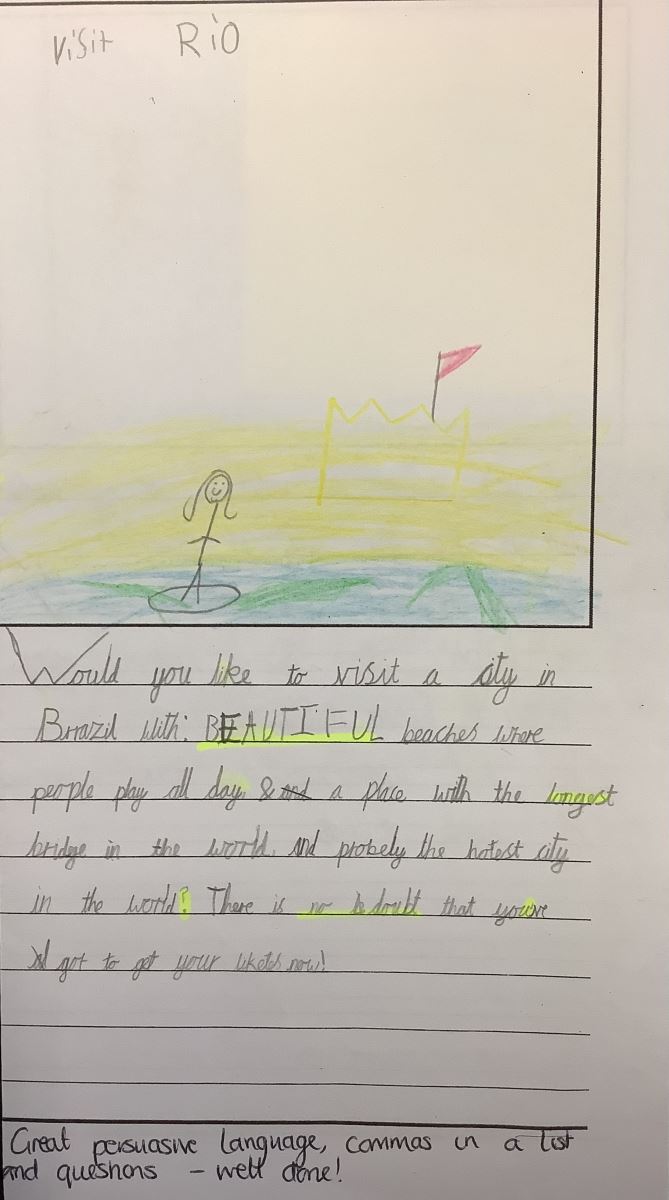 Visit Rio
Would you like to visit a city in
Brazil with: BEAUTIFUL beaches where
people play all day, & and a place with the longest
bridge in the world, and probely the hotest city
in the world? There is no doubt that you've
got to get your tikets now!
Great persuasive language, commas in a list
and questions – well done!